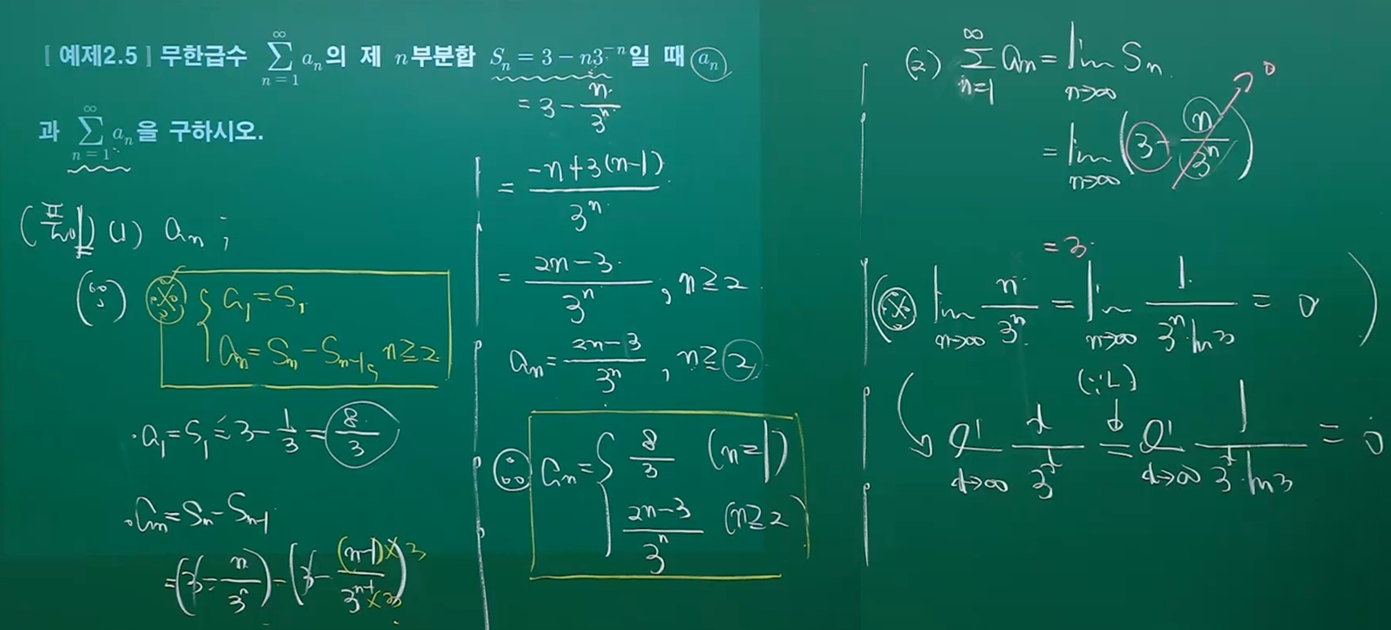 [ 예제2.5 ] 무한급수 ∑_{n=1}^{∞} aₙ의 제 n부분합 Sₙ = 3 - n3^{-n}일 때 aₙ
= 3 - n/3ⁿ
과 ∑_{n=1}^{∞} aₙ을 구하시오.
(풀이) (1) aₙ ;
(∵) ※ { a₁ = S₁
aₙ = Sₙ - Sₙ₋₁, n ≥ 2
· a₁ = S₁ = 3 - 1/3 = 8/3
· aₙ = Sₙ - Sₙ₋₁
= (3 - n/3ⁿ) - (3 - (n-1)×3/3ⁿ⁻¹×3)
= (-n+3(n-1))/3ⁿ
= (2n-3)/3ⁿ , n ≥ 2
aₙ = (2n-3)/3ⁿ , n ≥ 2
∴ aₙ = { 8/3 (n=1)
(2n-3)/3ⁿ (n≥2
(2) ∑_{n=1}^{∞} aₙ = lim_{n→∞} Sₙ
= lim_{n→∞} (3 - n/3ⁿ) 0
= 3
(※ lim_{n→∞} n/3ⁿ = lim_{n→∞} 1/(3ⁿ·ln3) = 0 )
(∵L)
lim_{x→∞} x/3ˣ = lim_{x→∞} 1/(3ˣ·ln3) = 0